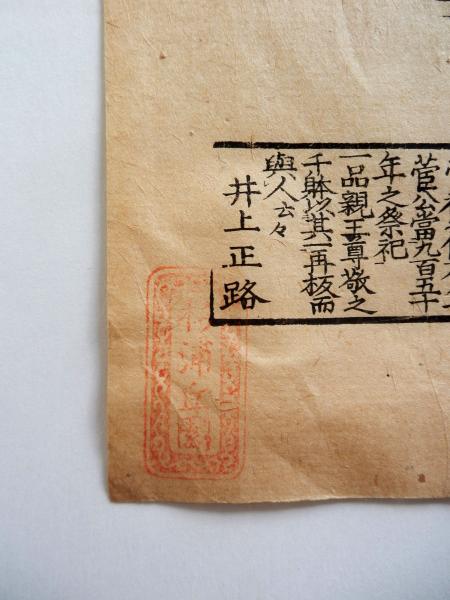 菅公當九百五十
年之祭祀
一品親王尊敬之
千躰以其一再板而
與人云々
井上正路
杉浦丘園